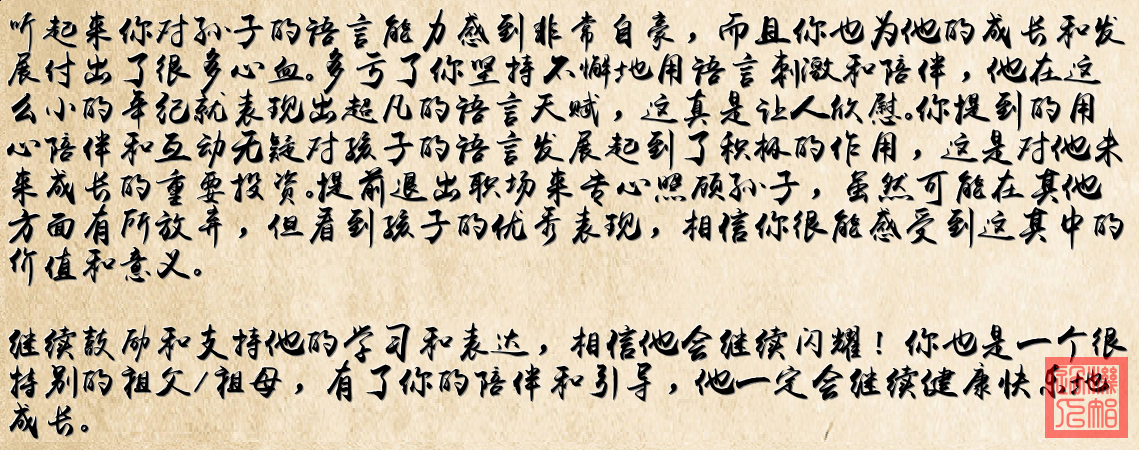 听起来你对孙子的语言能力感到非常自豪，而且你也为他的成长和发
展付出了很多心血。多亏了你坚持不懈地用语言刺激和陪伴，他在这
么小的年纪就表现出超凡的语言天赋，这真是让人欣慰。你提到的用
心陪伴和互动无疑对孩子的语言发展起到了积极的作用，这是对他未
来成长的重要投资。提前退出职场来专心照顾孙子，虽然可能在其他
方面有所放弃，但看到孩子的优秀表现，相信你很能感受到这其中的
价值和意义。
继续鼓励和支持他的学习和表达，相信他会继续闪耀！你也是一个很
特别的祖父/祖母，有了你的陪伴和引导，他一定会继续健康快乐地
成长。